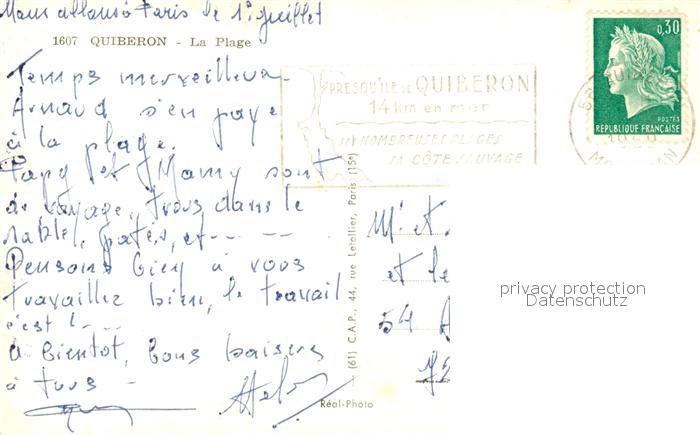 Nous allons à Paris le 1° juillet
1607 QUIBERON - La Plage
Temps merveilleux
Arnaud s'en paye
à la plage.
Papy et Mamy sont
de voyage, trous dans le
sable, patés, et - - - -
Pensons bien à vous
travaillez bien, le travail
c'est ! - - -
à bientôt, bons baisers
à tous -
Réal-Photo
(61) C.A.P., 44, rue Letellier, Paris (15e)
PRESQU'ILE DE QUIBERON
14 km en mer
SES NOMBREUSES PLAGES
SA CÔTE SAUVAGE
0,30
POSTES
REPUBLIQUE FRANÇAISE
Mr et
et le
54
privacy protection
Datenschutz